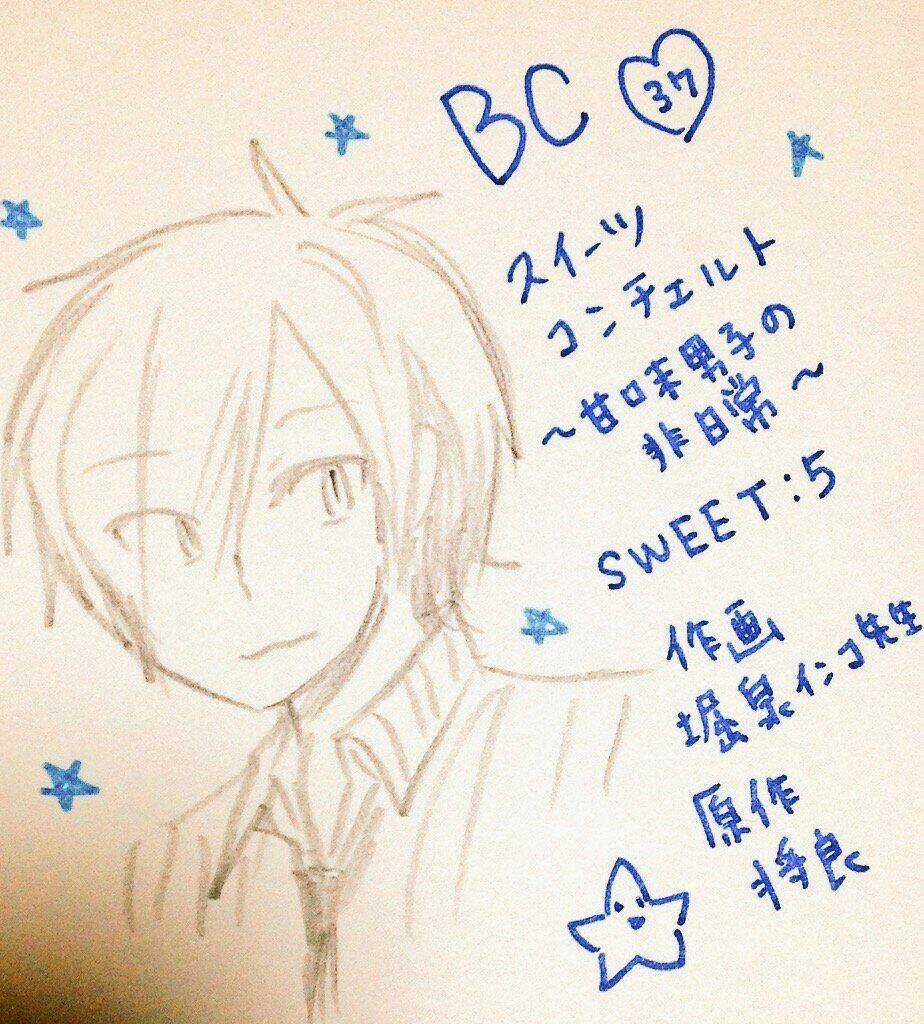 BC 37
スイーツ
コンチェルト
~甘口末男子の
非日常~
SWEET:5
作画
堀泉インコ先生
原作
将良